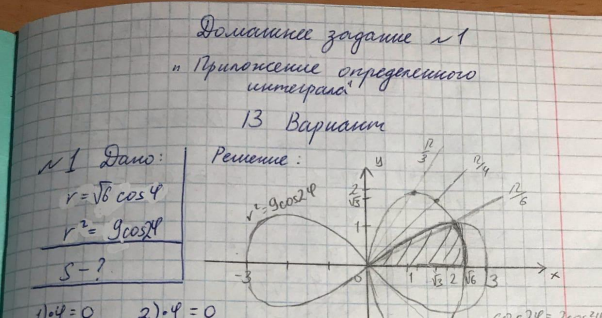 Домашнее задание №1
"Приложение определенного
интеграла"
13 Вариант
№1 Дано:
r = √6 cos φ
r² = 9cos2φ
S - ?
Решение:
r² = 9cos2φ
y
π/3
π/4
π/6
2
√3
1
-3
0
1
√3
2
√6
3
x
1) φ = 0
2) φ = 0